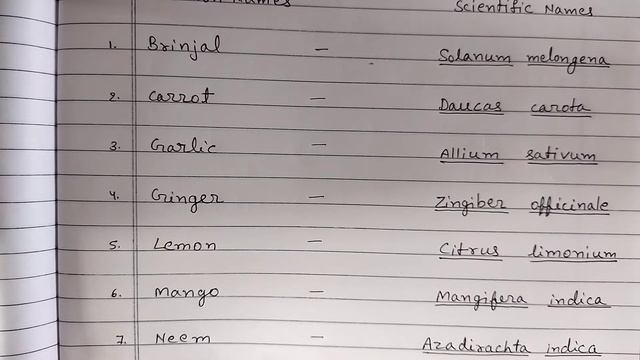 Names Scientific Names
1. Brinjal — Solanum melongena
2. Carrot — Daucas carota
3. Garlic — Allium sativum
4. Ginger — Zingiber officinale
5. Lemon — Citrus limonium
6. Mango — Mangifera indica
7. Neem — Azadirachta indica